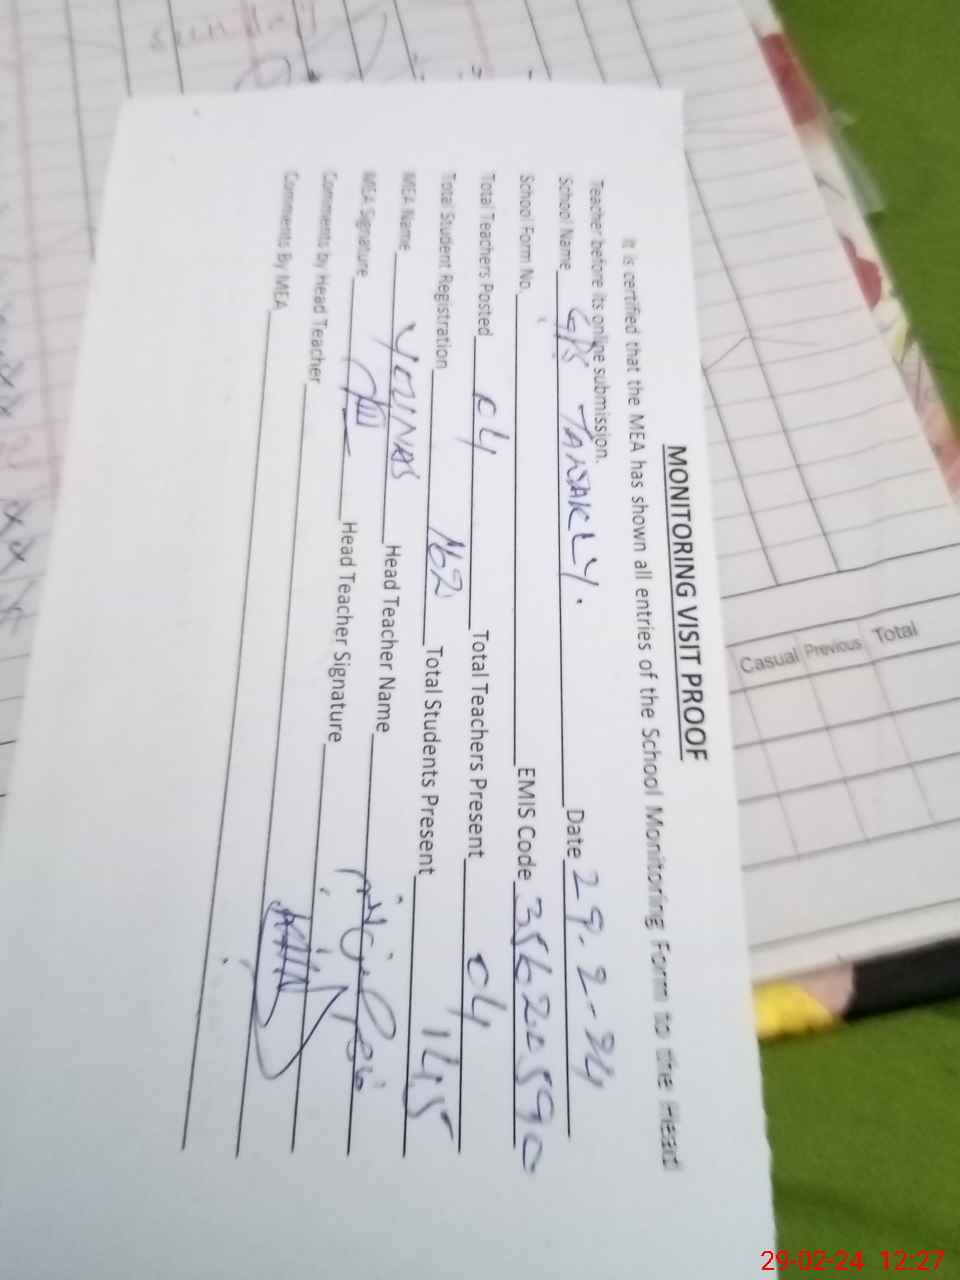 MONITORING VISIT PROOF
It is certified that the MEA has shown all entries of the School Monitoring Form to the Head
Teacher before its online submission.
School Name GPS Date 29-2-24
School Form No. EMIS Code
Total Teachers Posted 04 Total Teachers Present 04
Total Student Registration 162 Total Students Present 145
MEA Name YOUNAS Head Teacher Name
MEA Signature Head Teacher Signature
Comments by Head Teacher
Comments By MEA
Casual Previous Total
29-02-24 12:27